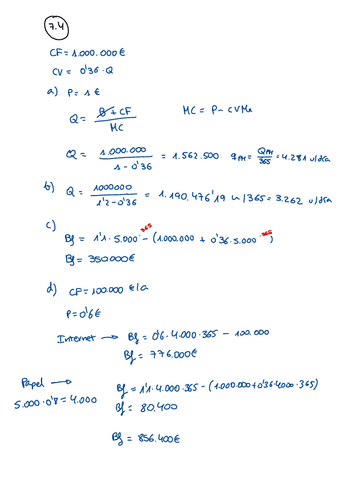 7.4
CF = 1.000.000 €
CV = 0'36 · Q
a) P = 1 €
Q = B + CF / MC MC = P - CVMe
Q = 1.000.000 / 1 - 0'36 = 1.562.500 qPM = QPM / 365 = 4.281 u/día
b) Q = 1000000 / 1'2 - 0'36 = 1.190.476'19 u/365 = 3.262 u/día
c)
Bf = 1'1 · 5.000 · 365 - (1.000.000 + 0'36 · 5.000 · 365)
Bf = 350.000 €
d) CF = 100.000 €/a
P = 0'6 €
Internet → Bf = 0'6 · 4.000 · 365 - 100.000
Bf = 776.000 €
Papel →
5.000 · 0'8 = 4.000
Bf = 1'1 · 4.000 · 365 - (1.000.000 + 0'36 · 4000 · 365)
Bf = 80.400
Bf = 856.400 €